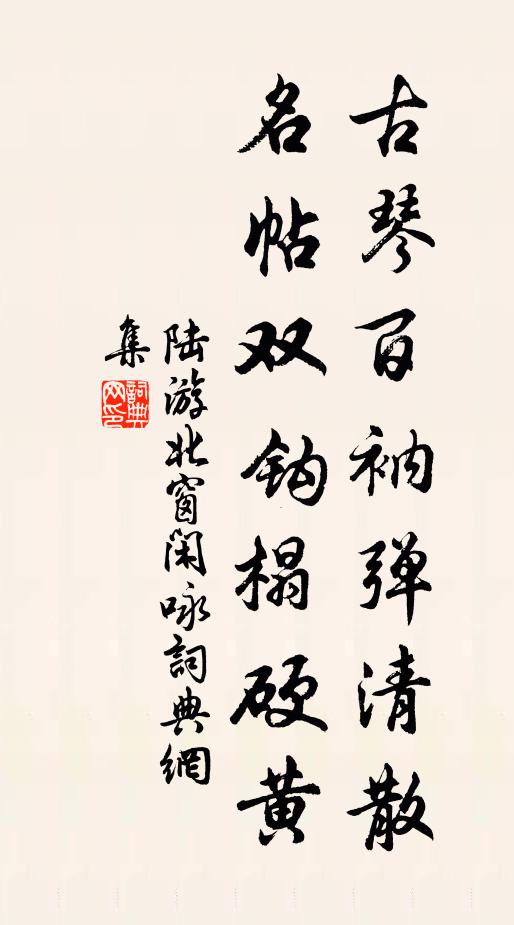 古琴百衲弹清散
名帖双钩榻硬黄
陆游北窗閑咏詞典網
集
詞典网印